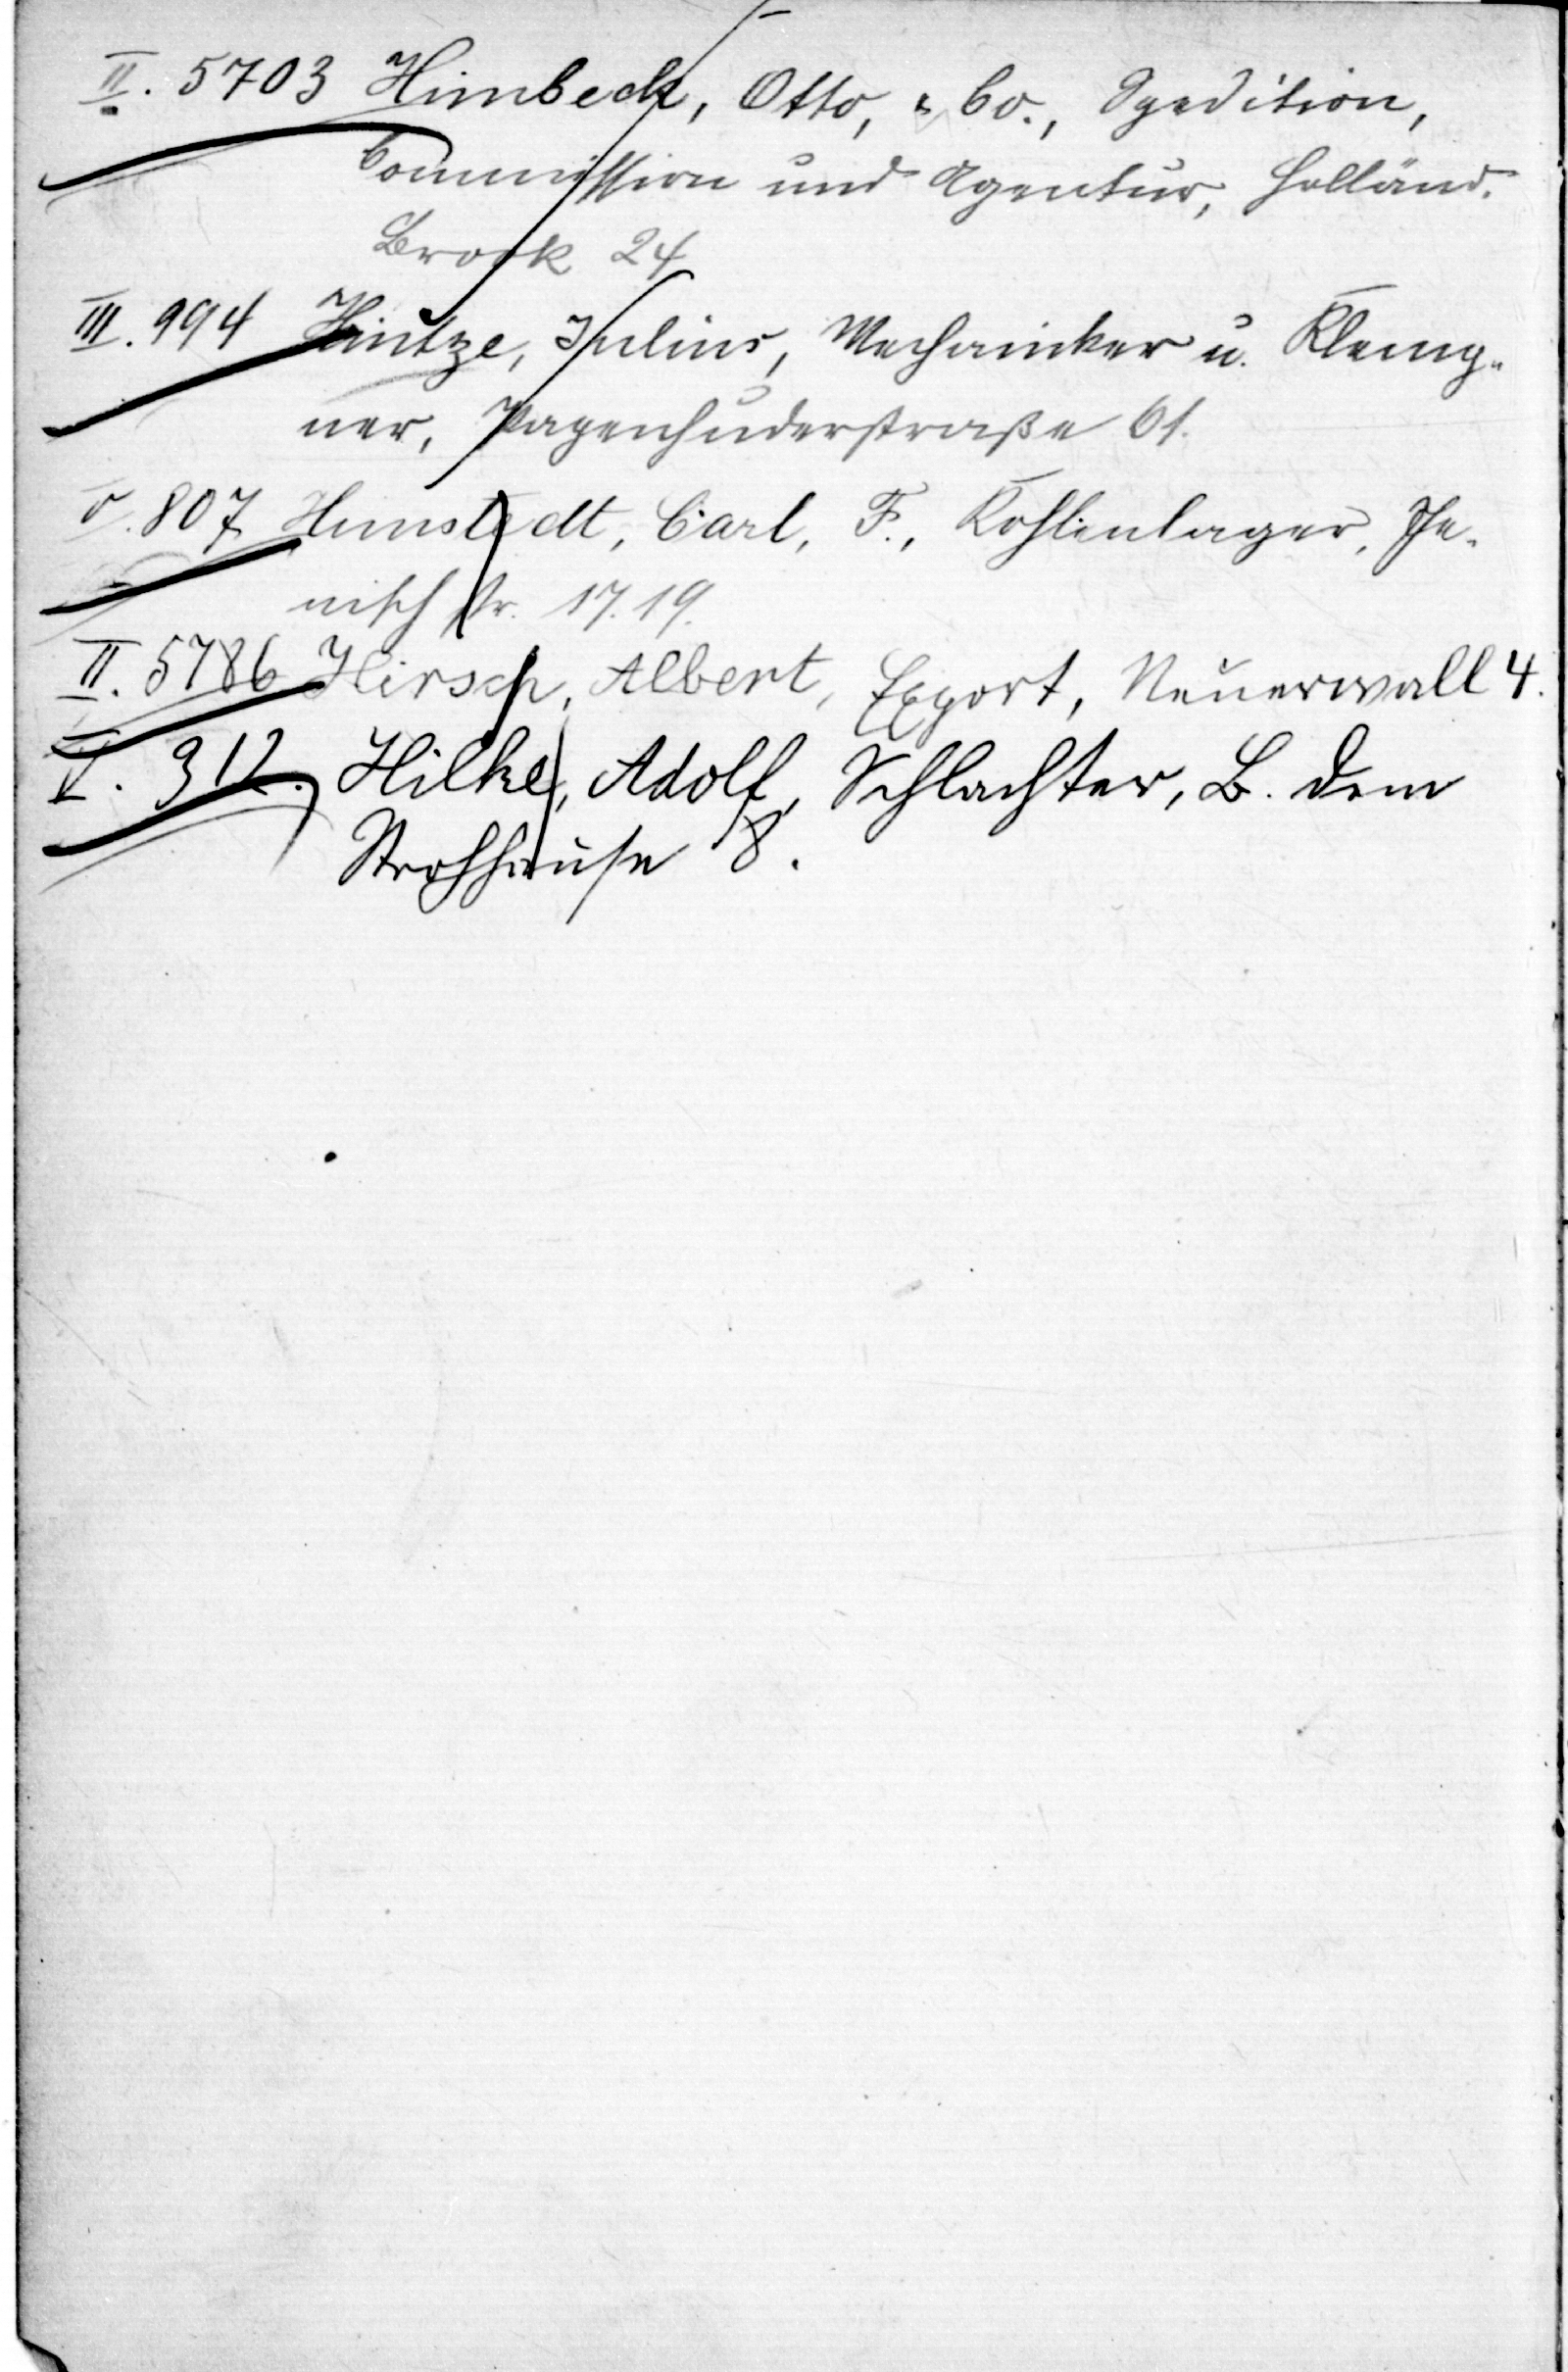 II. 5703 Himbeck, Otto, & Co., Spedition,
Commission und Agentur, Holländ.
Brook 24
III. 994 Hintze, Julius, Mechaniker u. Klemp-
ner, Pagenhuderstraße 61.
V. 807 Himstedt, Carl, F., Kohlenlager, Je-
nisch str. 17.19.
II. 5786 Hirsch, Albert, Export, Neuerwall 4.
V. 312. Hilke, Adolf, Schlachter, B. dem
Strohhause 8.